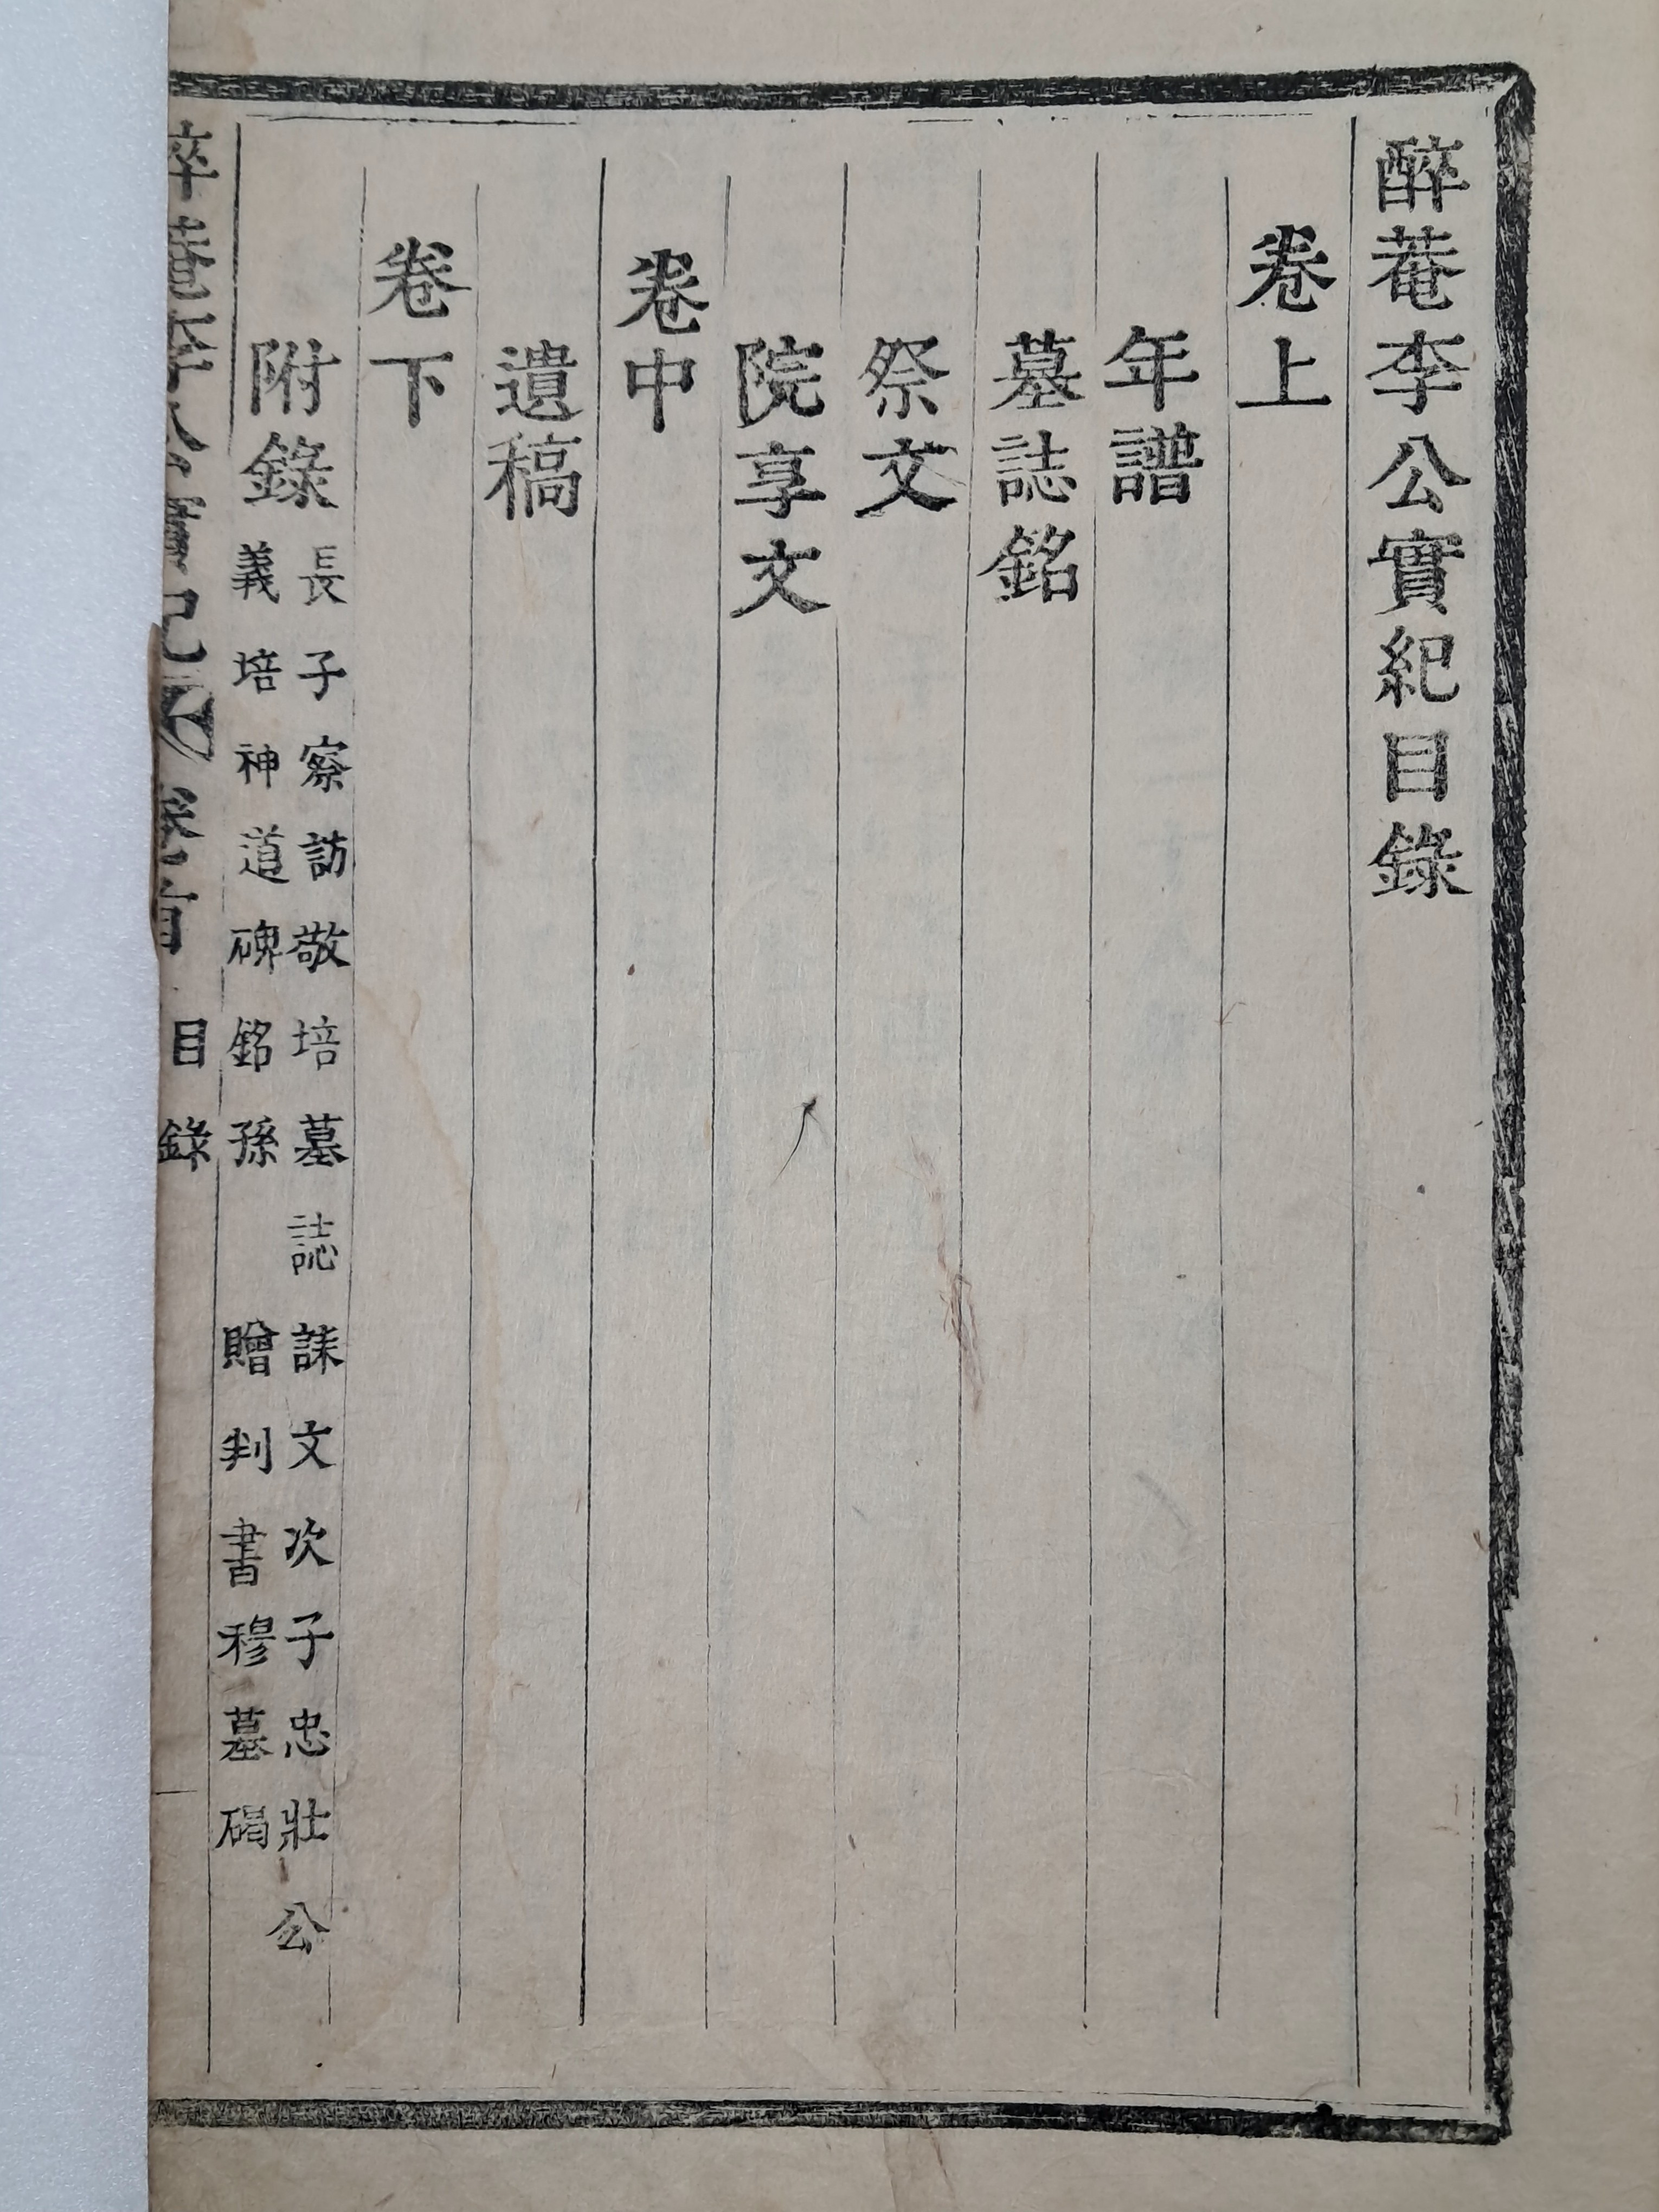 醉菴李公實紀目錄
卷上
年譜
墓誌銘
祭文
院享文
卷中
遺稿
卷下
附錄
長子察訪敬培墓誌 誄文次子忠壯公
義培神道碑銘孫 贈判書穆墓碣
醉菴李公實紀 卷首 目錄